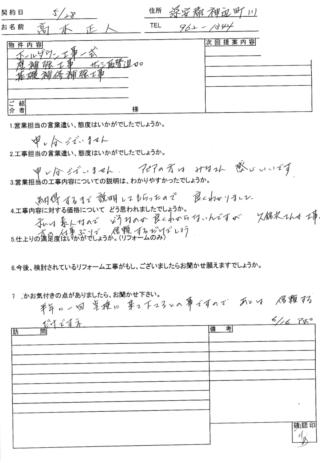 契約日 5/28 住所
お名前 高木 正人 TEL 962-1344
物件内容 次回提案内容
ホールダウン工事一式
床補強工事
基礎補修補強工事
ご紹介者 様
1.営業担当の言葉遣い、態度はいかがでしたでしょうか。
申し分ございません
2.工事担当の言葉遣い、態度はいかがでしたでしょうか。
申し分ございません 方は みなさん 感じいいです
3.営業担当の工事内容についての説明は、わかりやすかったでしょうか。
納得するまで 説明してもらったので 良くわかりました
4.工事内容に対する価格について どう思われましたでしょうか。
私は素人なので 良くわからないんですが
信頼するだけでしょう
5.仕上りの満足度はいかがでしょうか。(リフォームのみ)
6.今後、検討されているリフォーム工事がもし、ございましたらお聞かせ願えますでしょうか。
7 .かお気付きの点がありましたら、お聞かせ下さい。
半年に一回 点検に 来て下さるとの事ですので あとは 信頼する
だけです。
訪問 備考
確認印